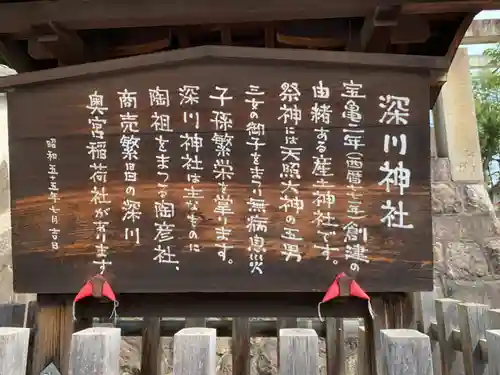 深川神社
宝亀二年（西暦七七一年）創建の
由緒ある産土神社です。
祭神には天照大神の五男
三女の御子をまつり無病息災
子孫繁栄を掌ます。
深川神社は主なものに
陶祖をまつる陶彦社、
商売繁昌の深川
奥宮稲荷社があります
昭和五十五年七月吉日